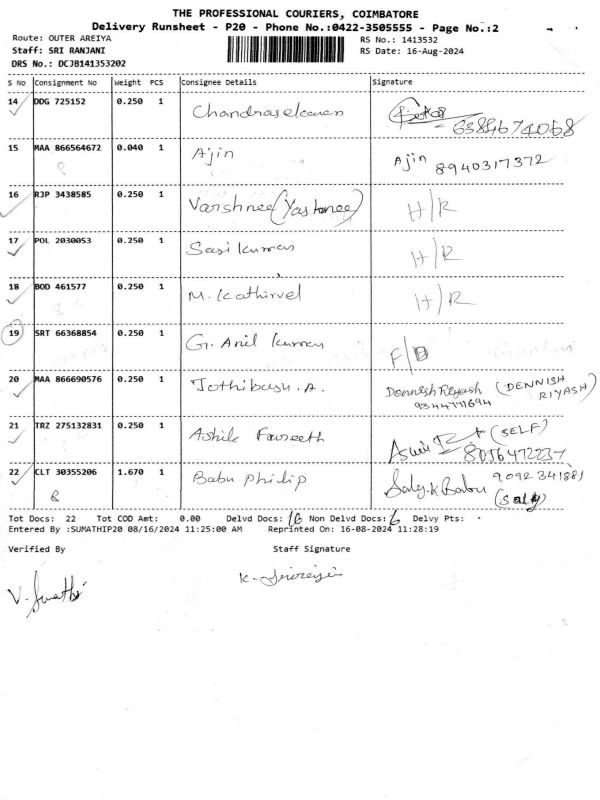 THE PROFESSIONAL COURIERS, COIMBATORE
Delivery Runsheet - P20 - Phone No.:0422-3505555 - Page No.:2
Route: OUTER AREIYA RS No.: 1413532
Staff: SRI RANJANI RS Date: 16-Aug-2024
DRS No.: DCJB141353202
S No Consignment No Weight PCS Consignee Details Signature
14 DDG 725152 0.250 1 Chandrasekaran
6384674068
15 MAA 866564672 0.040 1 Ajin Ajin 8940317372
16 RJP 3438585 0.250 1 Varshnee (Yastanee) H/R
17 POL 2030053 0.250 1 Sasi Kumar H/R
18 BOD 461577 0.250 1 M. Kathirvel H/R
19 SRT 66368854 0.250 1 G. Anil Kumar F/D
20 MAA 866690576 0.250 1 Jothibasu. A. Dennish Riyash (DENNISH RIYASH)
9344771694
21 TRZ 275132831 0.250 1 Ashik Fareeth (SELF)
8056472237
22 CLT 30355206 1.670 1 Babu Philip Saly.K Babu 9092341881
(Saly)
Tot Docs: 22 Tot COD Amt: 0.00 Delvd Docs: 16 Non Delvd Docs: 6 Delvy Pts:
Entered By :SUMATHIP20 08/16/2024 11:25:00 AM Reprinted On: 16-08-2024 11:28:19
Verified By Staff Signature
V. Sumathi